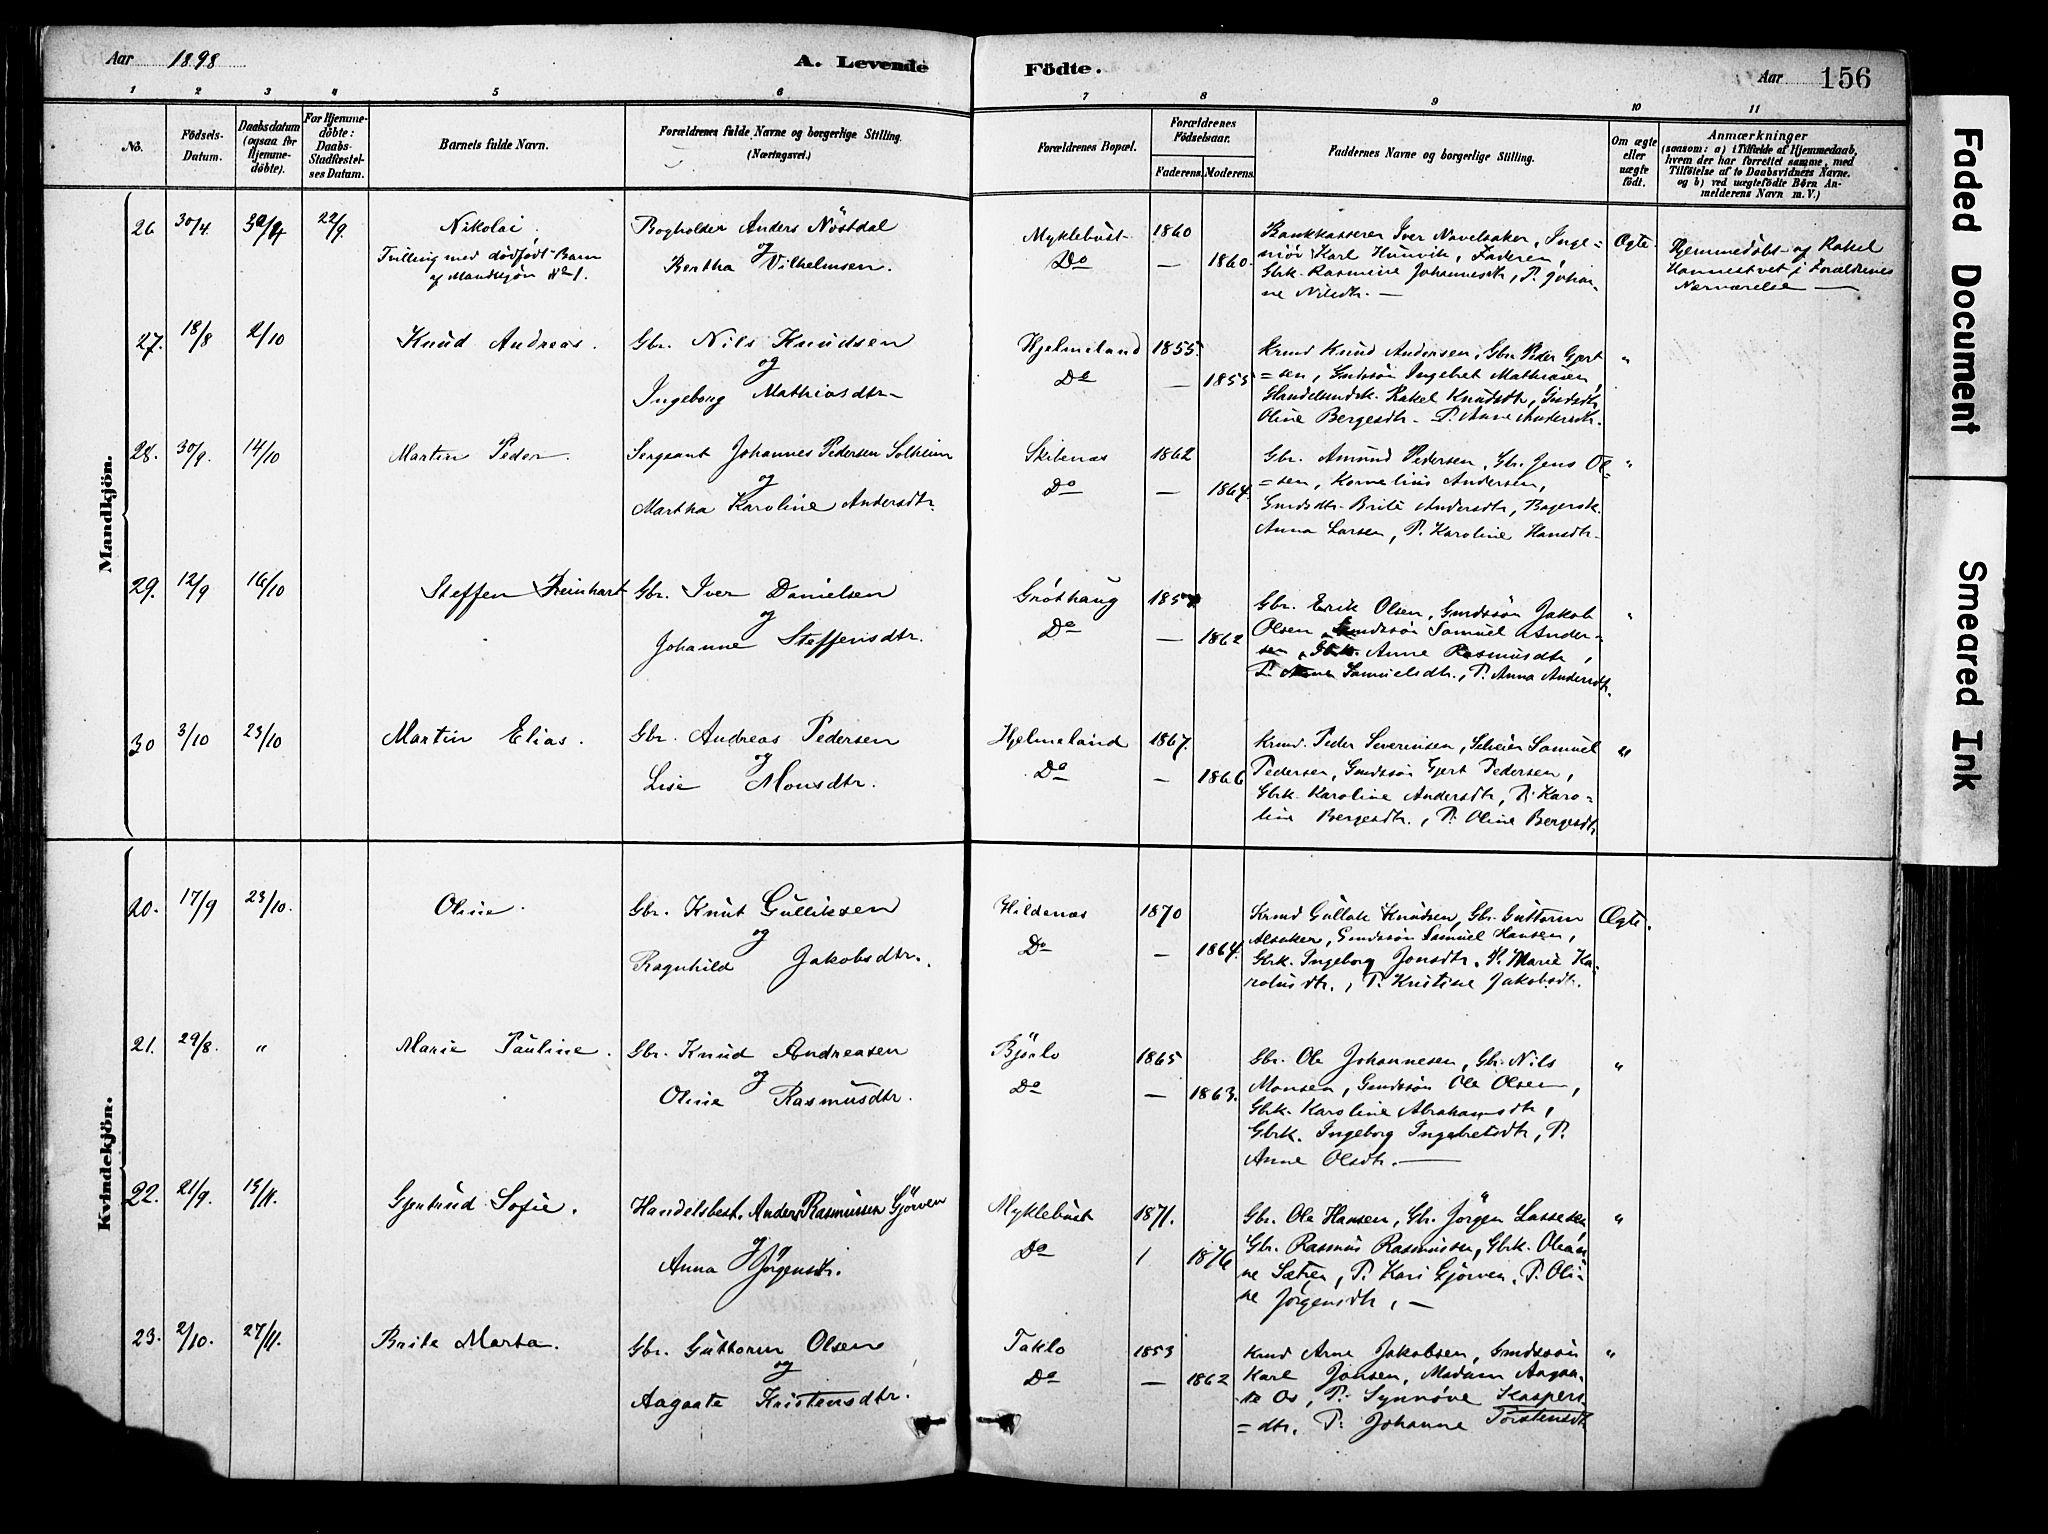 Aar 1898
A. Levende
Födte.
Aar
156
1 2 3 4 5 6 7 8 9 10 11
No.
Födsels-
Datum.
Daabsdatum
(ogsaa for
Hjemme-
döbte).
For Hjemme-
döbte:
Daabs-
Stadfæstel-
ses Datum.
Barnets fulde Navn.
Forældrenes fulde Navne og borgerlige Stilling.
(Næringsvei.)
Forældrenes Bopæl.
Forældrenes
Födselsaar.
Faderens. Moderens.
Faddernes Navne og borgerlige Stilling.
Om ægte
eller
uægte
födt.
Anmærkninger
(saasom: a) i Tilfælde af Hjemmedaab,
hvem der har forrettet samme, med
Tilföielse af to Daabsvidners Navne.
og b) ved uægtefödte Börn An-
melderens Navn m. V.)
Mandkjön.
26 30/4. 30/4 22/9. Nikolai.
Tvilling med dødfødt Barn
af Mandkjøn No 1.
Bogholder Anders Nöstdal
og
Bertha Vilhelmsen.
Myklebust
Do
1860
— 1860.
Bankkasserer Iver Navelsaker, Inge-
niør Karl Hunvik, Faderen,
Gbk. Rasmine Johannesdtr, P. Johan-
ne Nilsdtr. —
Ægte
Hjemmedøbt af Rakel
i Forældrenes
Nærværelse —
27. 18/8 2/10 Knud Andreas.
Gbr. Nils Knudsen
og
Ingeborg Mathiasdtr.
Hjelmeland
Do
1855.
— 1855
Krmd Knud Andersen, Gbr. Peder Gjert
=sen, Gmdssön Ingebret Mathiasen,
Rakel Knudsdtr, Gmdsdtr
Oline Bergesdtr. P. Anne Andersdtr.
"
28. 30/9. 14/10 Martin Peder.
Sergeant Johannes Pedersen Solheim
og
Martha Karoline Andersdtr.
Skibenæs
Do
1862
— 1864.
Gbr. Amund Pedersen, Gbr. Jens Ol-
=sen, Kornelius Andersen,
Gmdsdtr. Brite Andersdtr, Bagersk.
Anna Larsen, P. Karoline Hansdtr.
"
29. 12/9 16/10 Steffen Reinhart
Gbr. Iver Danielsen
og
Johanne Steffensdtr.
Gröthaug
Do
1857
— 1862
Gbr. Erik Olsen, Gmdssön Jakob
Olsen, Gmdssön Samuel Ander-
sen, Gbk. Anne Rasmusdtr,
P. Anne Samuelsdtr., P. Anna Andersdtr.
"
30 3/10 23/10 Martin Elias.
Gbr. Andreas Pedersen
og
Lise Monsdtr.
Hjelmeland
Do
1867.
— 1866
Krmd. Peder Severinsen, Samuel
Pedersen, Gmdssön Gjert Pedersen,
Gbrk. Karoline Andersdtr, P. Karo-
line Bergesdtr., P. Oline Bergesdtr.
"
Kvindekjön.
20. 17/9 23/10. Oline.
Gbr. Knut Gulliksen
og
Ragnhild Jakobsdtr.
Hildenæs
Do
1870
— 1864.
Krmd Gullak Knudsen, Gbr. Guttorm
Alsaker, Gmdssön Samuel Hansen,
Gbrk. Ingeborg Jonsdtr., P. Marie Ka-
rolusdtr., P. Kristine Jakobsdtr.
Ægte.
21. 29/8. " Marie Pauline.
Gbr. Knud Andreasen
og
Oline Rasmusdtr.
Björlo
Do
1865
— 1863.
Gbr. Ole Johannesen, Gbr. Nils
Monsen, Gmdssön Ole Olsen,
Gbrk. Karoline Abrahamsdtr,
Gbrk. Ingeborg Ingebretsdtr, P.
Anne Olsdtr. —
"
22. 21/9. 13/11. Gjertrud Sofie.
Handelsbest. Anders Rasmussen Gjörven
og
Anna Jörgensdtr.
Myklebust
Do
1871.
1 1876
Gbr. Ole Hansen, Gbr. Jörgen Lassesen
Gbr. Rasmus Rasmussen, Gbrk. Olean-
ne Sætren, P. Kari Gjörven, P. Oli-
ne Jörgensdtr, —
"
23. 2/10. 27/11. Brite Marta.
Gbr. Guttorm Olsen
og
Aagaate Kristensdtr.
Taklo
Do
1853
— 1862
Krmd Arne Jakobsen, Gmdssön
Karl Jonsen, Madam Aagaa-
te Os, P. Synnöve Kaspers-
=dtr. P. Johanne Torstensdtr
"
Faded Document
Smeared Ink